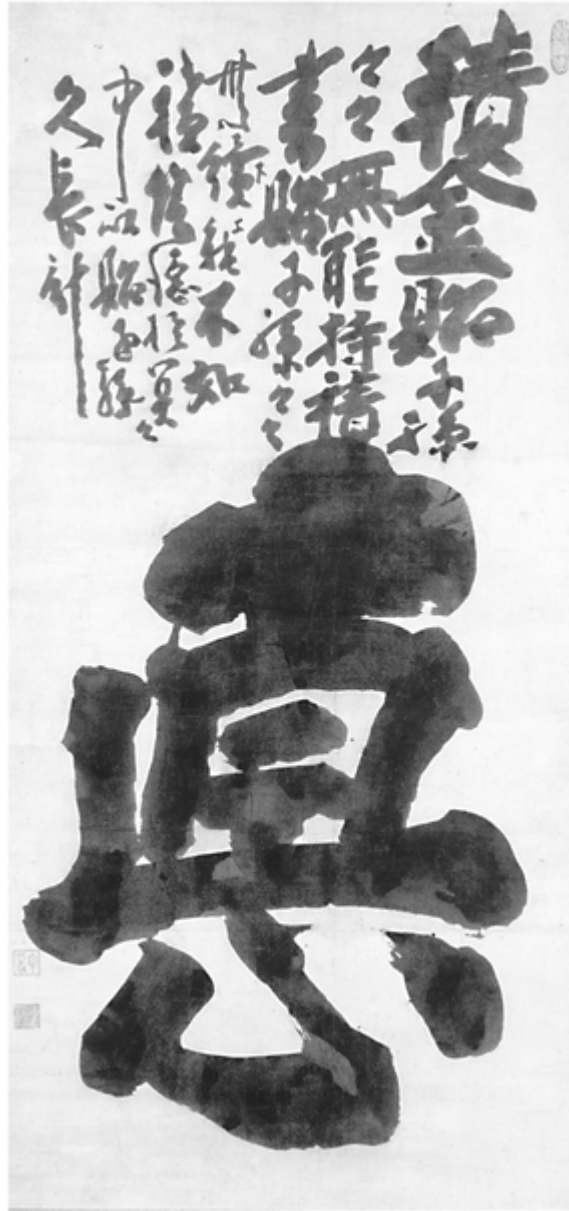 積金貽子孫
々々無能持積
書貽子孫々々
能不如
積陰德於冥々
中以貽子孫
久長計
悳